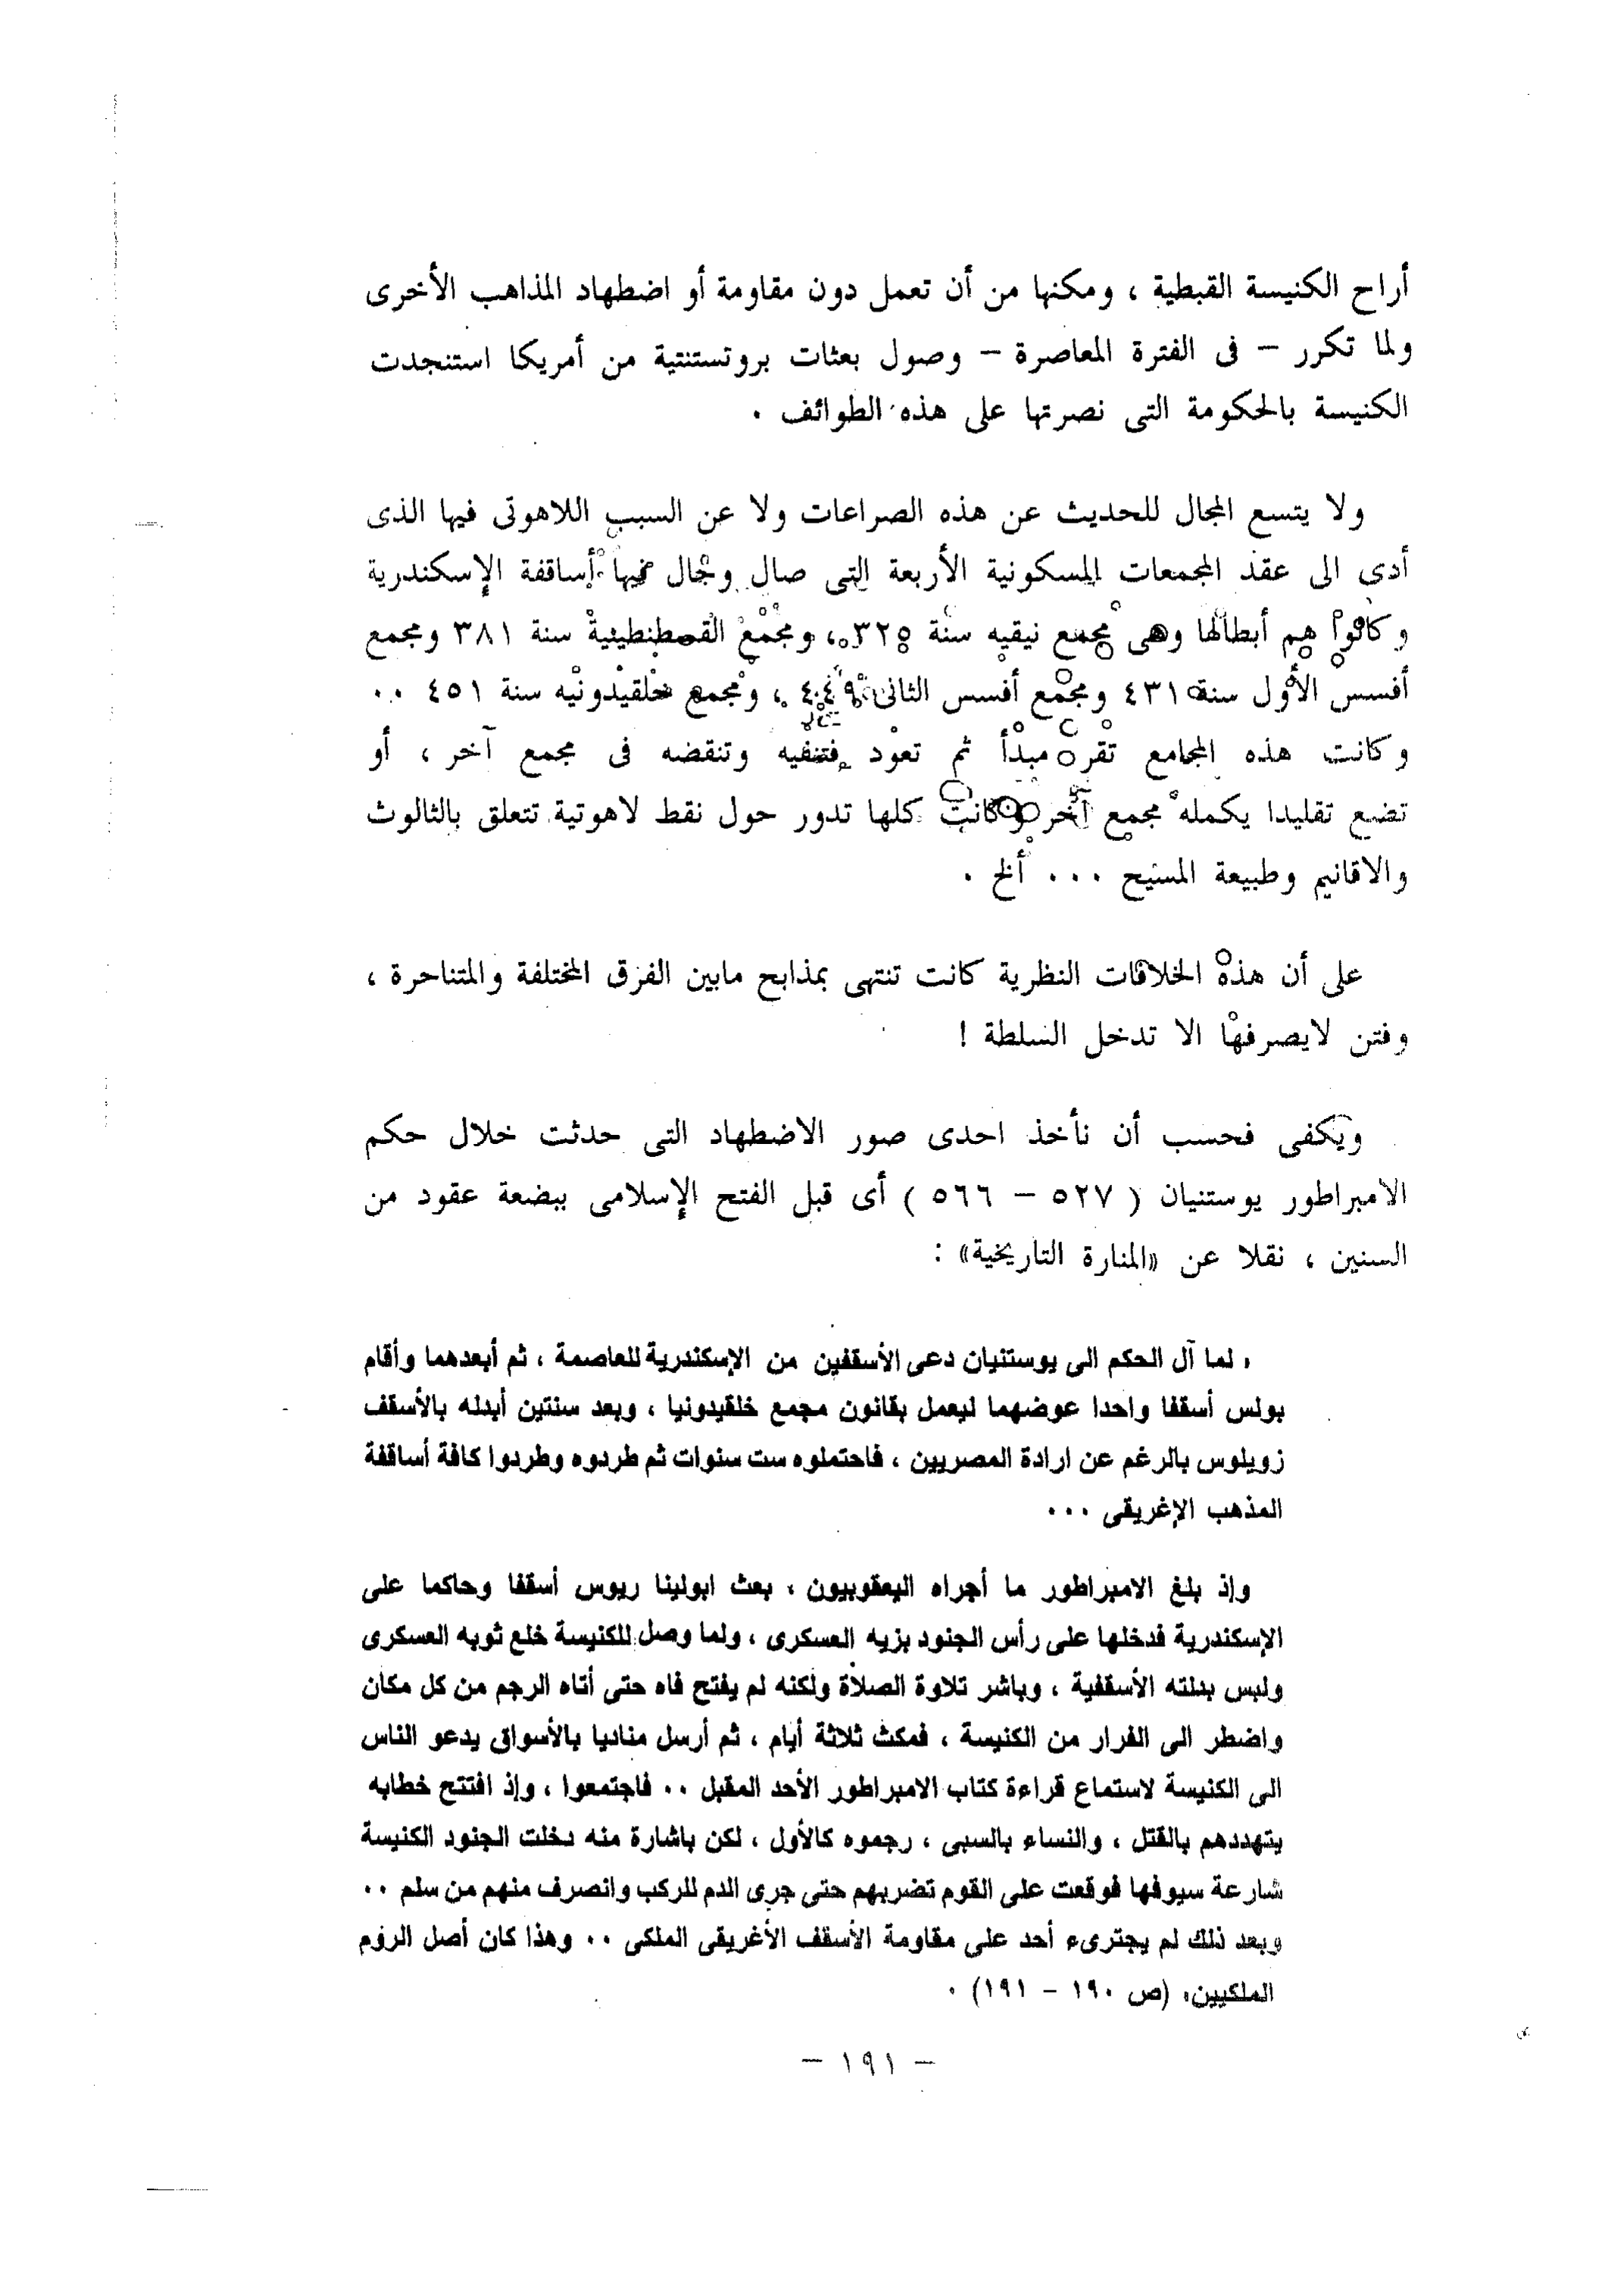 أراح الكنيسة القبطية ، ومكنها من أن تعمل دون مقاومة أو اضطهاد المذاهب الأخرى
ولما تكرر – فى الفترة المعاصرة – وصول بعثات بروتستنتية من أمريكا استنجدت
الكنيسة بالحكومة التى نصرتها على هذه الطوائف .
ولا يتسع المجال للحديث عن هذه الصراعات ولا عن السبب اللاهوتى فيها الذى
أدى الى عقد المجمعات المسكونية الأربعة التى صال وجال فيها أساقفة الإسكندرية
وكانوا هم أبطالها وهى مجمع نيقيه سنة ٣٢٥ ، ومجمع القسطنطينية سنة ٣٨١ ومجمع
أفسس الأول سنة ٤٣١ ومجمع أفسس الثانى ، ومجمع خلقيدونيه سنة ٤٥١ ..
وكانت هذه المجامع تقر مبدأ ثم تعود فتنفيه وتنقضه فى مجمع آخر ، أو
تضع تقليدا يكمله مجمع آخر وكانت كلها تدور حول نقط لاهوتية تتعلق بالثالوث
والاقانيم وطبيعة المسيح ... ألخ .
على أن هذه الخلافات النظرية كانت تنتهى بمذابح مابين الفرق المختلفة والمتناحرة ،
وفتن لايصرفها الا تدخل السلطة !
ويكفى فحسب أن نأخذ احدى صور الاضطهاد التى حدثت خلال حكم
الامبراطور يوستنيان ( ٥٢٧ – ٥٦٦ ) أى قبل الفتح الإسلامى ببضعة عقود من
السنين ، نقلا عن «المنارة التاريخية» :
« لما آل الحكم الى يوستنيان دعى الأسقفين من الإسكندرية للعاصمة ، ثم أبعدهما وأقام
بولس أسقفا واحدا عوضهما ليعمل بقانون مجمع خلقيدونيا ، وبعد سنتين أبدله بالأسقف
زويلوس بالرغم عن ارادة المصريين ، فاحتملوه ست سنوات ثم طردوه وطردوا كافة أساقفة
المذهب الإغريقى ...
وإذ بلغ الامبراطور ما أجراه اليعقوبيون ، بعث ابولينا ريوس أسقفا وحاكما على
الإسكندرية فدخلها على رأس الجنود بزيه العسكرى ، ولما وصل للكنيسة خلع ثوبه العسكرى
ولبس بدلته الأسقفية ، وباشر تلاوة الصلاة ولكنه لم يفتح فاه حتى أتاه الرجم من كل مكان
واضطر الى الفرار من الكنيسة ، فمكث ثلاثة أيام ، ثم أرسل مناديا بالأسواق يدعو الناس
الى الكنيسة لاستماع قراءة كتاب الامبراطور الأحد المقبل .. فاجتمعوا ، وإذ افتتح خطابه
يتهددهم بالقتل ، والنساء بالسبى ، رجموه كالأول ، لكن باشارة منه دخلت الجنود الكنيسة
شارعة سيوفها فوقعت على القوم تضربهم حتى جرى الدم للركب وانصرف منهم من سلم ..
وبعد ذلك لم يجترىء أحد على مقاومة الأسقف الأغريقى الملكى .. وهذا كان أصل الروم
الملكيين» (ص ١٩٠ – ١٩١) .
– ١٩١ –